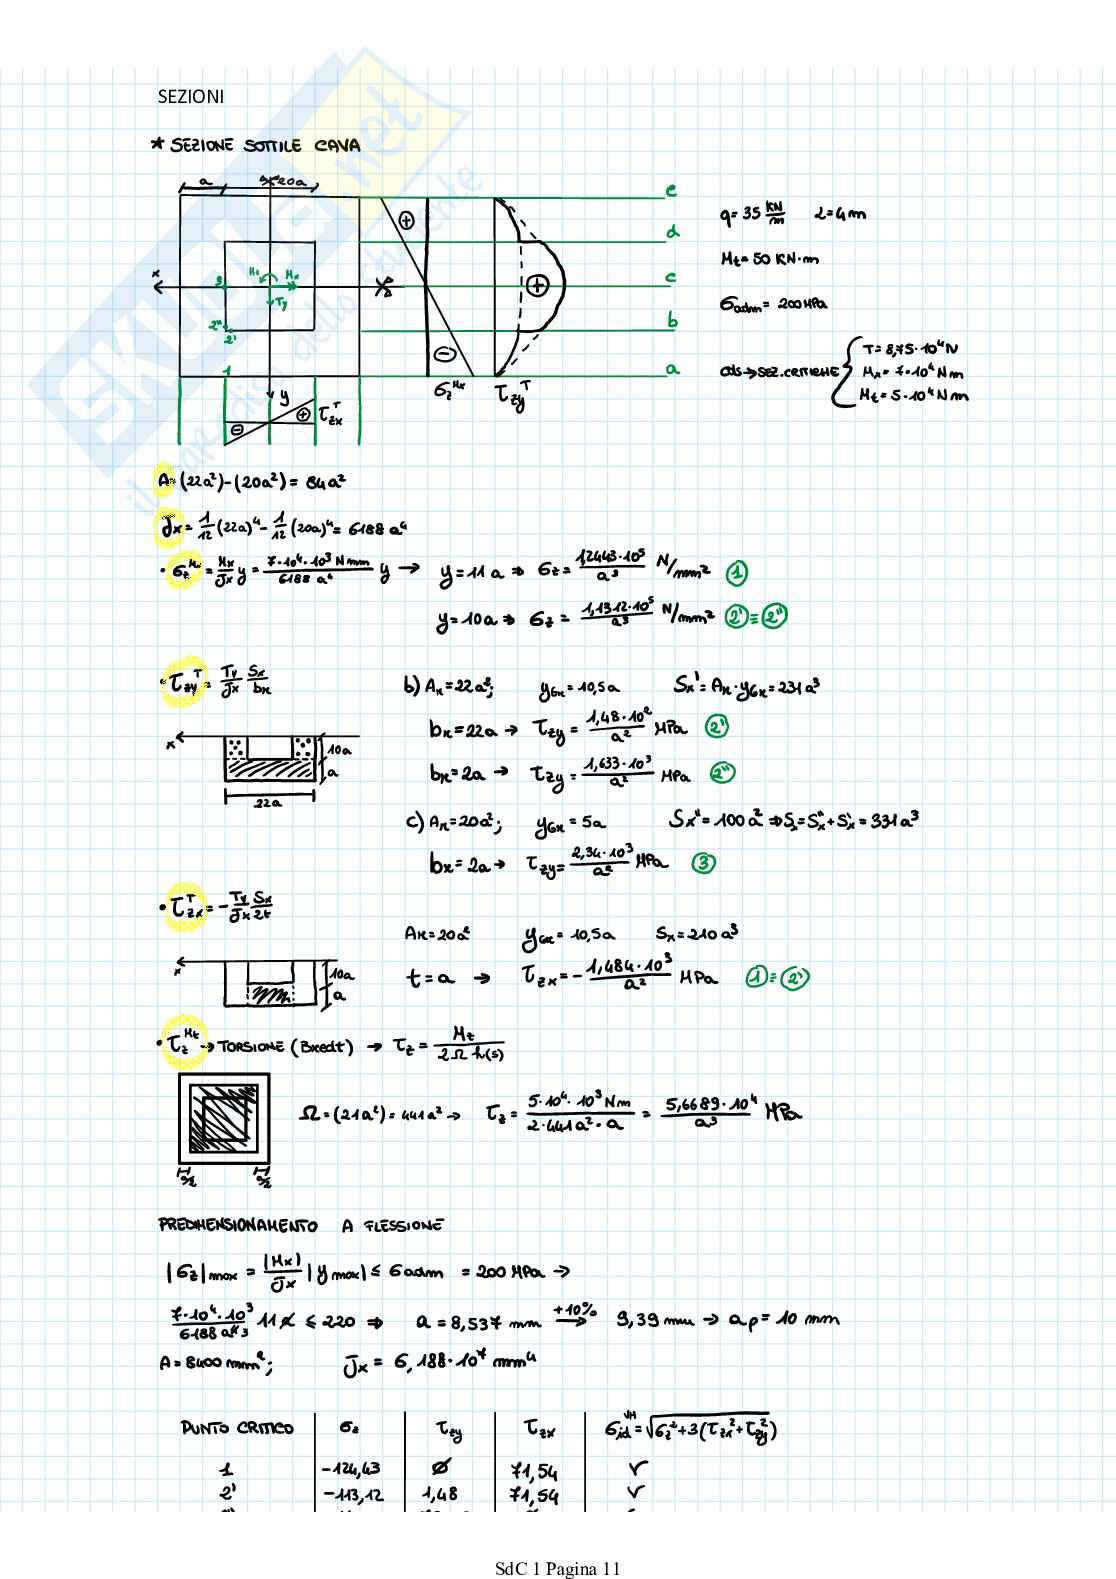 SEZIONI
* SEZIONE SOTTILE CAVA
a 20a
e
d
c
b
a
x
y
Mt Mx Ty
3
2" 2'
1
+
-
σz^Mx
τzy^T
- + τzx^T
q = 35 KN/m L = 4m
Mt = 50 KN·m
σadm = 200 MPa
CdS → SEZ. CRITICHE { T = 8,75·10⁴ N
Mx = 7·10⁴ Nm
Mt = 5·10⁴ Nm
A = (22a²) - (20a²) = 84a²
Jx = 1/12 (22a)⁴ - 1/12 (20a)⁴ = 6188 a⁴
• σz^Mx = Mx/Jx y = 7·10⁴·10³ Nmm / 6188 a⁴ y → y = 11a ⇒ σz = 1,2443·10⁵/a³ N/mm² ①
y = 10a ⇒ σz = 1,1312·10⁵/a³ N/mm² 2' = 2"
• τzy^T = Ty/Jx Sx/bx b) Ax = 22a²; yGx = 10,5a Sx' = Ax·yGx = 231a³
bx = 22a → τzy = 1,48·10²/a² MPa 2'
x 10a a 22a
bx = 2a → τzy = 1,633·10³/a² MPa 2"
c) Ax = 20a²; yGx = 5a Sx" = 100a² ⇒ Sx = Sx" + Sx' = 331a³
bx = 2a → τzy = 2,34·10³/a² MPa ③
• τzx^T = - Ty/Jx Sx/2t
Ax = 20a² yGx = 10,5a Sx = 210a³
x 10a a
t = a → τzx = - 1,484·10³/a² MPa ① = 2'
• τz^Mt → TORSIONE (Bredt) → τz = Mz / 2Ω h(s)
Ω = (21a²) = 441a² → τz = 5·10⁴·10³ Nm / 2·441a²·a = 5,6689·10⁴/a³ MPa
a/2 a/2
PREDIMENSIONAMENTO A FLESSIONE
|σz|max = |Mx|/Jx |ymax| ≤ σadm = 200 MPa →
7·10⁴·10³ / 6188 a⁴ ³ 11a ≤ 220 ⇒ a = 8,537 mm +10% → 9,39 mm → ap = 10 mm
A = 8400 mm²; Jx = 6,188·10⁷ mm⁴
PUNTO CRITICO σz τzy τzx σid^VM = √(σz² + 3(τzx² + τzy²))
1 -124,43 Ø 71,54 √
2' -113,12 1,48 71,54 √
SdC 1 Pagina 11
SKUOLA.net